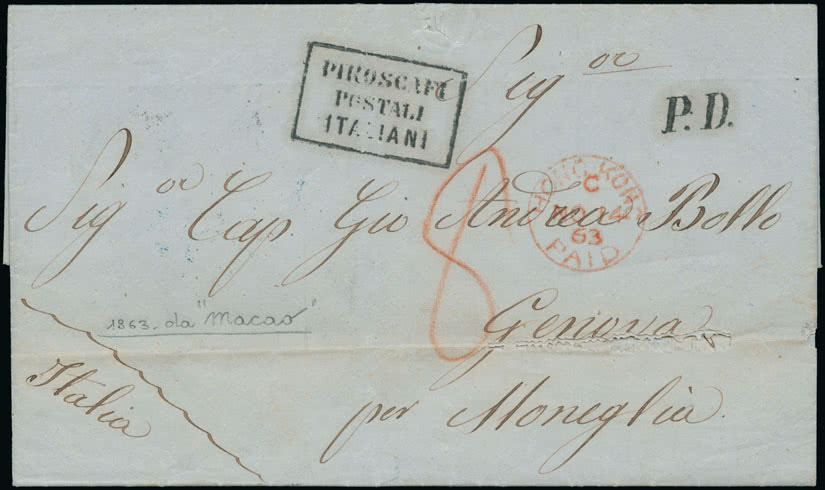 Sig.or
PIROSCAFI
POSTALI
ITALIANI
P.D.
Sig.or Cap. Gio Andrea Bollo
8
HONG-KONG
C
63
PAID
1863 - da "Macao"
Genova
Italia
per Moneglia